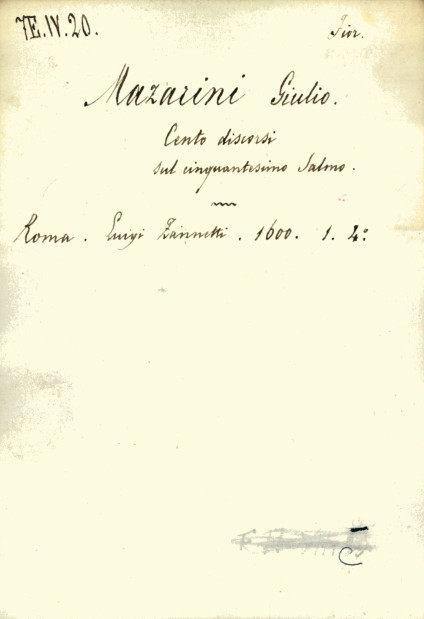 7E.IV.20.
Fior.
Mazarini Giulio.
Cento discorsi
sul cinquantesimo Salmo.
Roma. Luigi Zannetti. 1600. 1. 4º
C